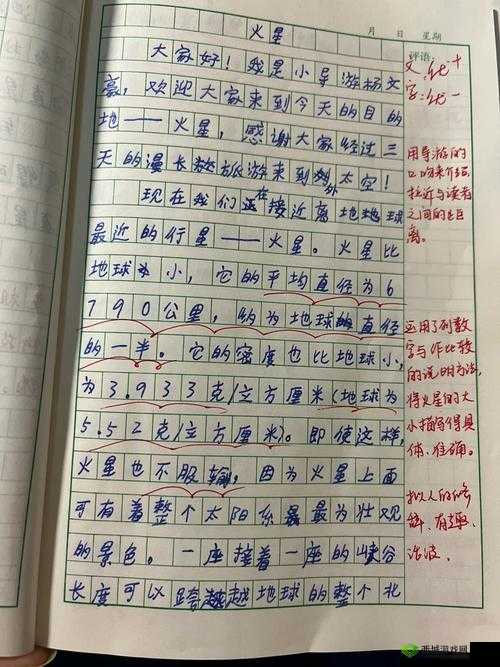 火星
月 日 星期
大家好！我是小导游杨文
豪，欢迎大家来到今天的目的
地——火星，感谢大家经过三
天的漫长旅游来到外太空！
现在我们正在接近离地球
最近的行星——火星。火星比
地球小，它的平均直径为6
790公里，约为地球的直径
的一半。它的密度也比地球小，
为3.933克/立方厘米（地球为
5.52克/立方厘米）。即使这样，
火星也不服输，因为火星上面
可有着整个太阳系最为壮观
的景色。一座接着一座的峡谷
长度可以跨越地球的整个北
评语：
文：优+
字：优-
用导游的
口吻来介绍，
拉近与读者
之间的距
离。
运用了列数
字与作比较
的说明方法，
将火星的大
小描写得具
体、准确。
拟人的修
辞，有趣、
活泼。
西城游戏网